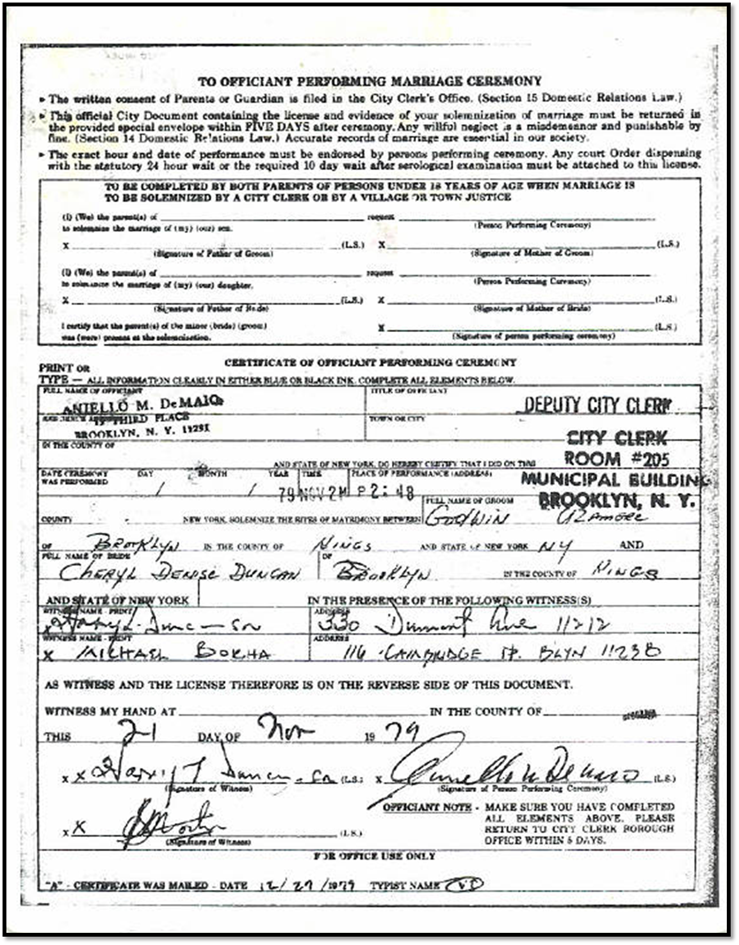 TO OFFICIANT PERFORMING MARRIAGE CEREMONY
▸ The written consent of Parents or Guardian is filed in the City Clerk's Office. (Section 15 Domestic Relations Law.)
▸ This official City Document containing the license and evidence of your solemnization of marriage must be returned in
the provided special envelope within FIVE DAYS after ceremony. Any willful neglect is a misdemeanor and punishable by
fine. (Section 14 Domestic Relations Law.) Accurate records of marriage are essential in our society.
▸ The exact hour and date of performance must be endorsed by persons performing ceremony. Any court Order dispensing
with the statutory 24 hour wait or the required 10 day wait after serological examination must be attached to this license.
TO BE COMPLETED BY BOTH PARENTS OF PERSONS UNDER 18 YEARS OF AGE WHEN MARRIAGE IS
TO BE SOLEMNIZED BY A CITY CLERK OR BY A VILLAGE OR TOWN JUSTICE
(I) (We) the parent(s) of request
to solemnize the marriage of (my) (our) son. (Person Performing Ceremony)
X (L.S.) X (L.S.)
(Signature of Father of Groom) (Signature of Mother of Groom)
(I) (We) the parent(s) of request
to solemnize the marriage of (my) (our) daughter. (Person Performing Ceremony)
X (L.S.) X (L.S.)
(Signature of Father of Bride) (Signature of Mother of Bride)
I certify that the parent(s) of the minor (bride) (groom) X (L.S.)
was (were) present at the solemnization. (Signature of person performing ceremony)
CERTIFICATE OF OFFICIANT PERFORMING CEREMONY
PRINT OR
TYPE — ALL INFORMATION CLEARLY IN EITHER BLUE OR BLACK INK. COMPLETE ALL ELEMENTS BELOW.
FULL NAME OF OFFICIANT TITLE OF OFFICIANT
ANIELLO M. DeMAIO DEPUTY CITY CLERK
THIRD PLACE TOWN OR CITY
BROOKLYN, N. Y. 11231 CITY CLERK
IN THE COUNTY OF ROOM #205
AND STATE OF NEW YORK, DO HEREBY CERTIFY THAT I DID ON THIS
DATE CEREMONY DAY MONTH YEAR TIME PLACE OF PERFORMANCE (ADDRESS) MUNICIPAL BUILDING
WAS PERFORMED / / 79 NOV 21 P 2: 48 BROOKLYN, N. Y.
FULL NAME OF GROOM
COUNTY NEW YORK, SOLEMNIZE THE RITES OF MATRIMONY BETWEEN Godwin
OF Brooklyn IN THE COUNTY OF Kings AND STATE OF NEW YORK NY AND
FULL NAME OF BRIDE OF
Cheryl Denise Duncan Brooklyn IN THE COUNTY OF Kings
AND STATE OF NEW YORK IN THE PRESENCE OF THE FOLLOWING WITNESS(S)
WITNESS NAME - PRINT ADDRESS
330 Dumont Ave 11212
WITNESS NAME - PRINT ADDRESS
X MICHAEL 116 CAMBRIDGE PL. BLYN 11238
AS WITNESS AND THE LICENSE THEREFORE IS ON THE REVERSE SIDE OF THIS DOCUMENT.
WITNESS MY HAND AT IN THE COUNTY OF
THIS 21 DAY OF Nov 19 79
X X (L.S.) X (L.S.)
(Signature of Witness) (Signature of Person Performing Ceremony)
OFFICIANT NOTE - MAKE SURE YOU HAVE COMPLETED
ALL ELEMENTS ABOVE. PLEASE
X X (L.S.) RETURN TO CITY CLERK BOROUGH
(Signature of Witness) OFFICE WITHIN 5 DAYS.
FOR OFFICE USE ONLY
"A" - CERTIFICATE WAS MAILED - DATE 12/27/1979 TYPIST NAME